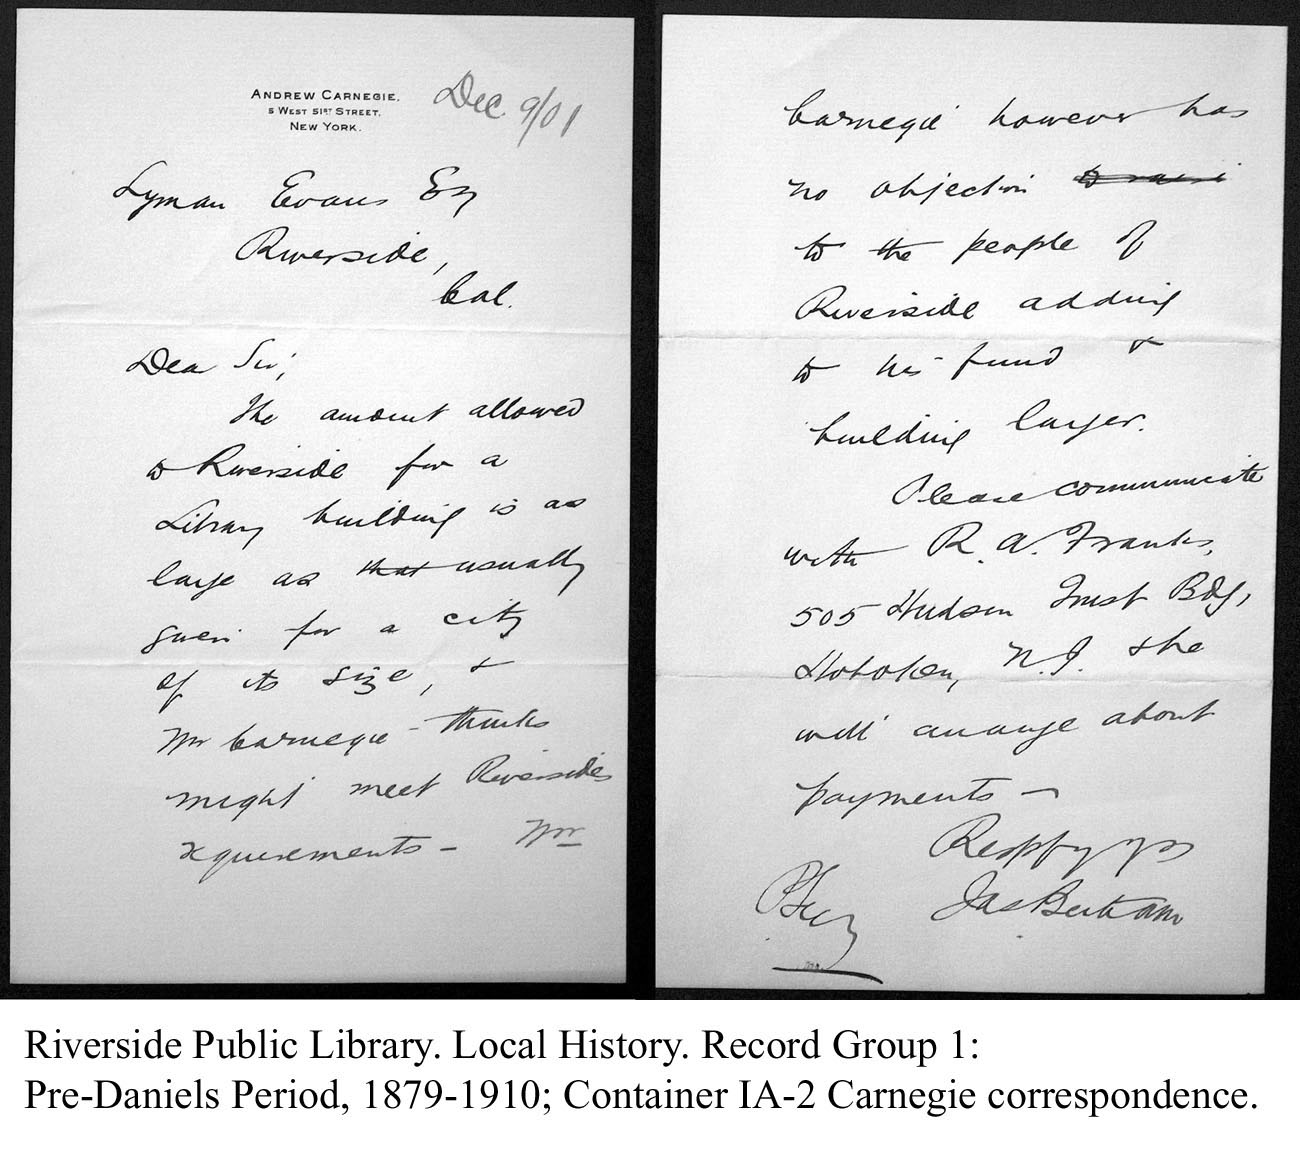 ANDREW CARNEGIE.
5 WEST 51ST STREET.
NEW YORK.
Dec 9/01
Lyman Evans Esq
Riverside,
Cal.
Dear Sir,
The amount allowed
to Riverside for a
Library building is as
large as that usually
given for a city
of its size, &
Mr Carnegie thinks
might meet Riversides
requirements - Mr
Carnegie however has
no objection
to the people of
Riverside adding
to his fund &
building larger.
Please communicate
with R. A. Franks,
505 Hudson Trust Bdg,
Hoboken, N.J. & he
will arrange about
payments -
Respfy yrs
Jas Bertram
P Secy
Riverside Public Library. Local History. Record Group 1:
Pre-Daniels Period, 1879-1910; Container IA-2 Carnegie correspondence.